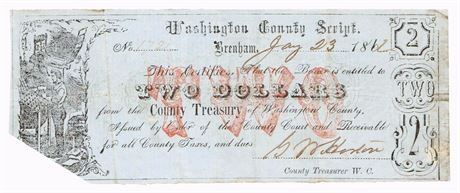 Washington County Script.
No.
Brenham, Jay 23 186
2
This Certifies, That the Bearer is entitled to
TWO DOLLARS
TWO
from the County Treasury of Washington County.
Issued by Order of the County Court and Receivable
for all County Taxes, and dues
2
County Treasurer W. C.
TWO